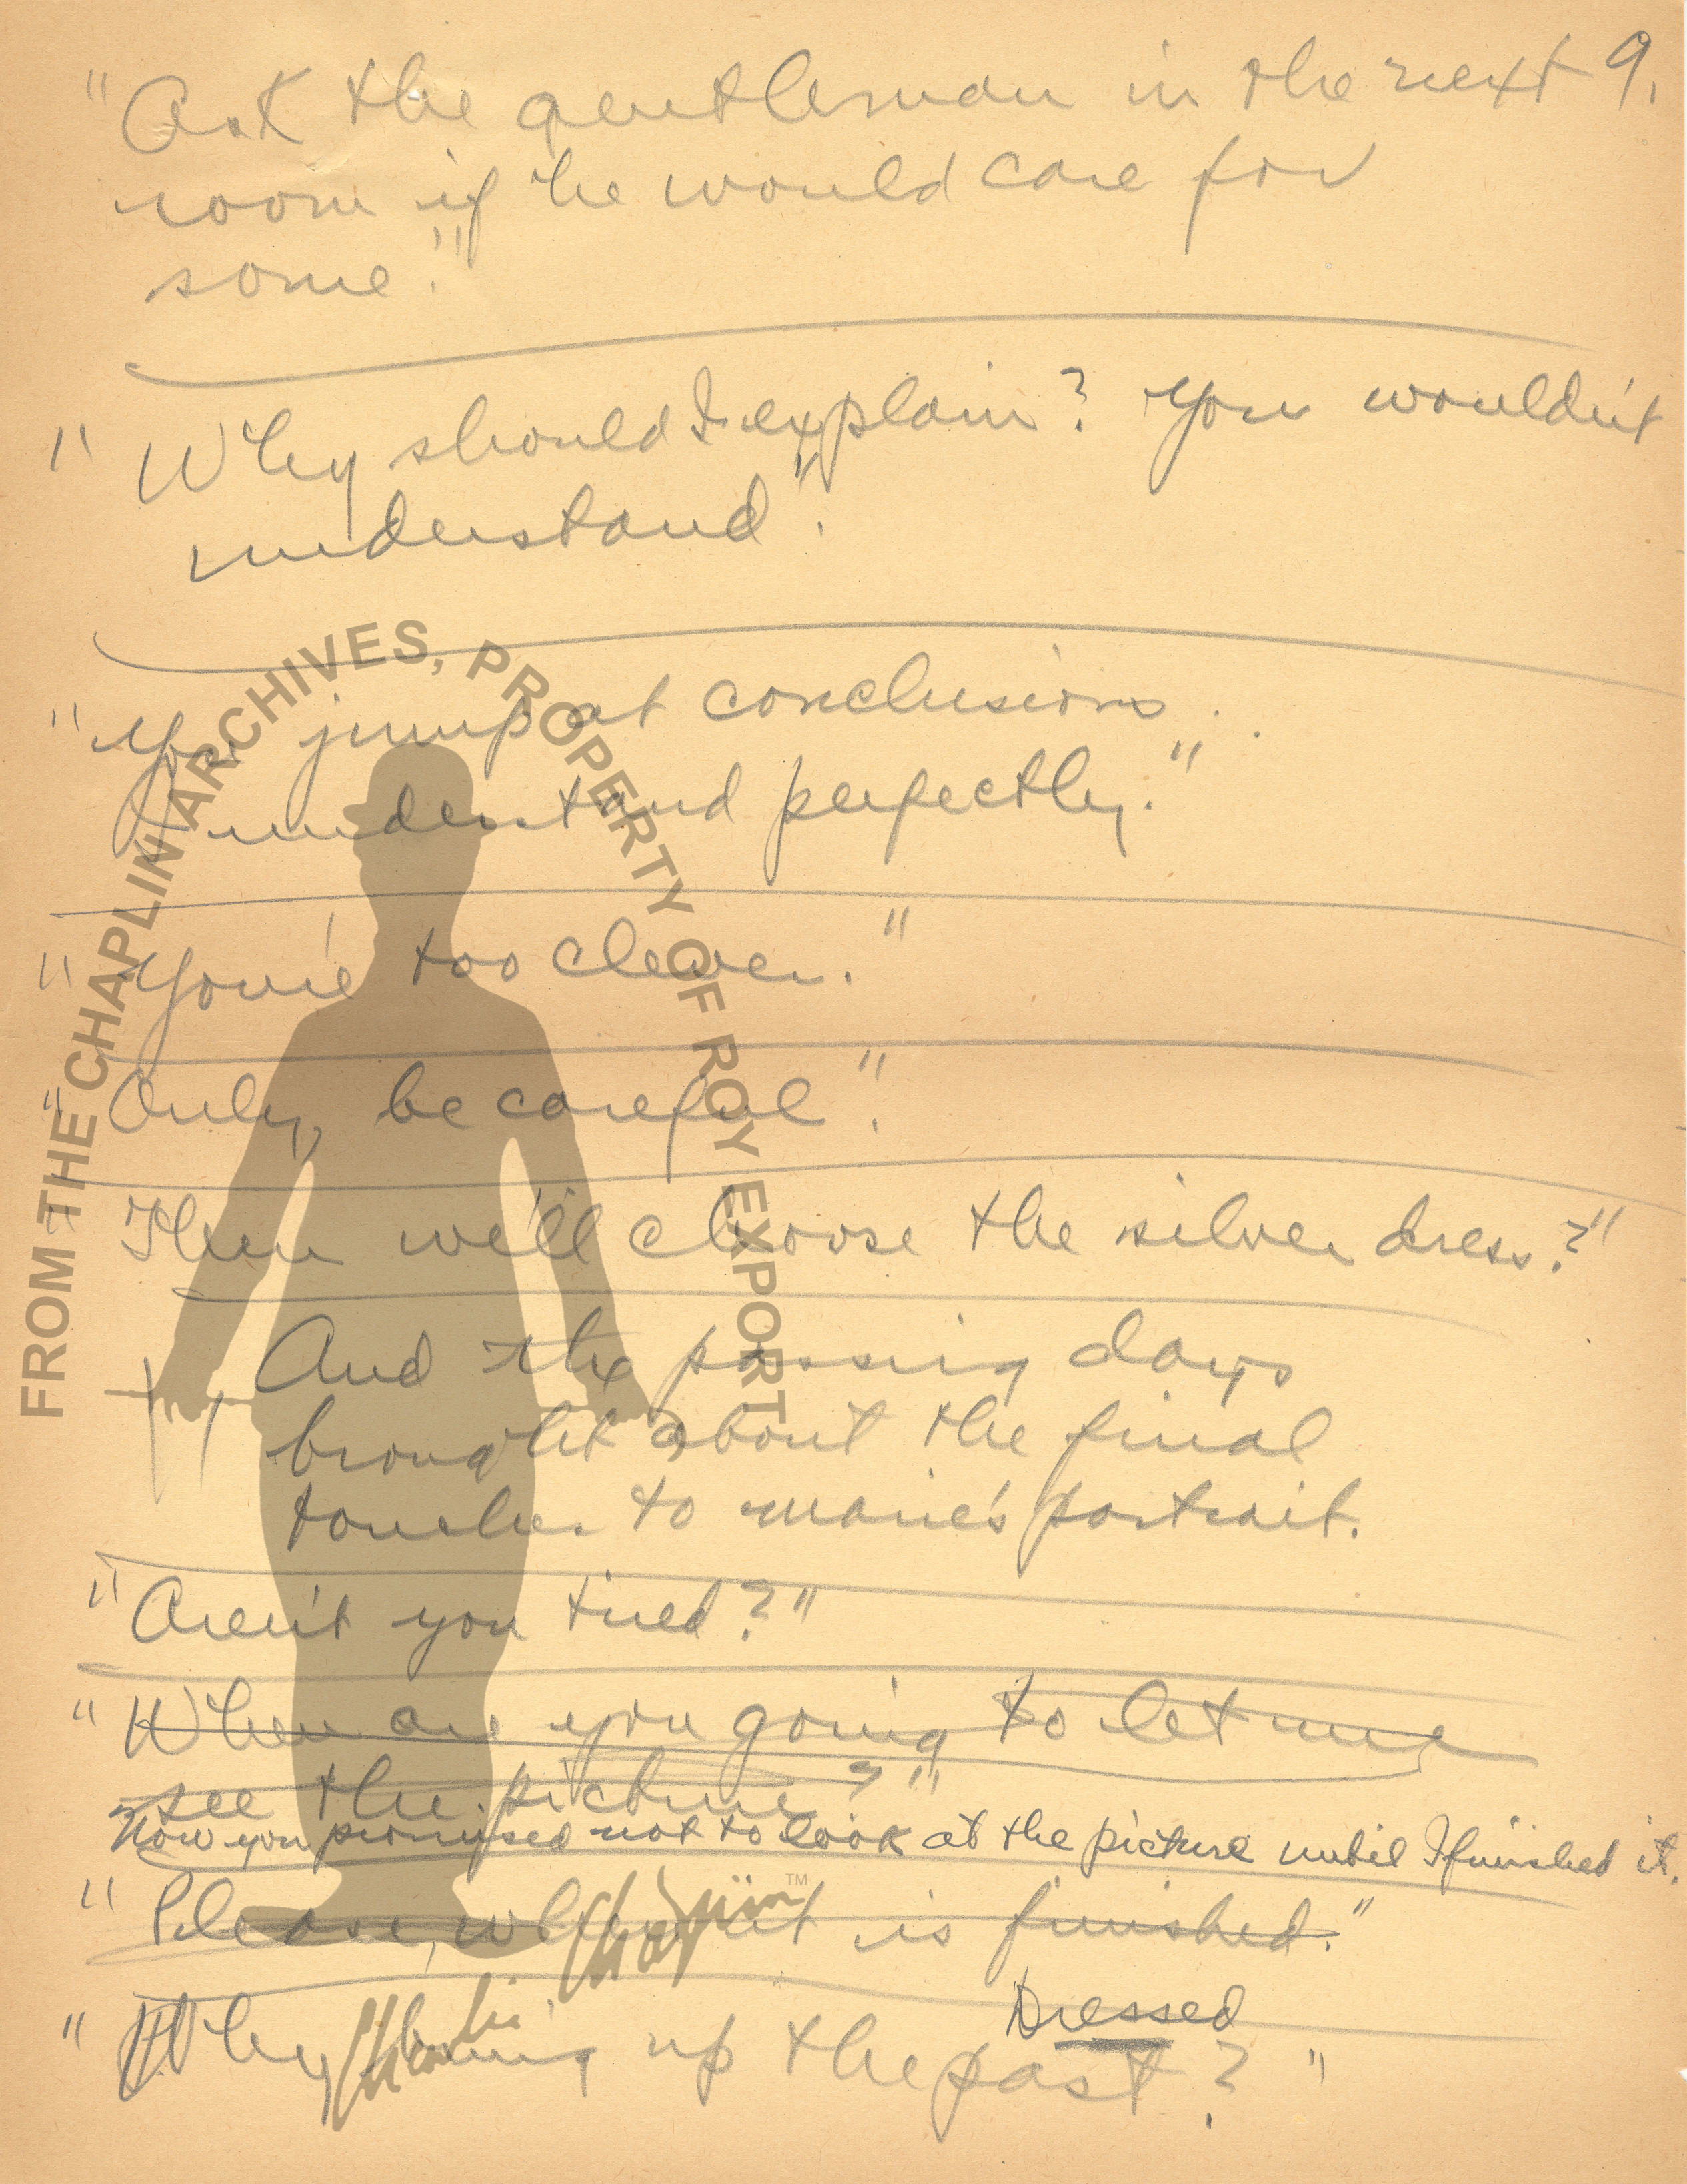 "Ask the gentleman in the next 9.
room if he would care for
some."
"Why should I explain? You wouldn't
understand".
"You jump at conclusions.
I understand perfectly."
"You're too clever."
"Only, be careful".
Then we'll choose the silver dress?"
And the passing days
brought about the final
touches to Marie's portrait.
"Aren't you tired?"
"When are you going to let me
see the picture?"
Now you promised not to look at the picture until I finished it.
"Please, when it is finished."
Dressed
"Why bring up the past?"
FROM THE CHAPLIN ARCHIVES, PROPERTY OF ROY EXPORT
Charlie Chaplin TM